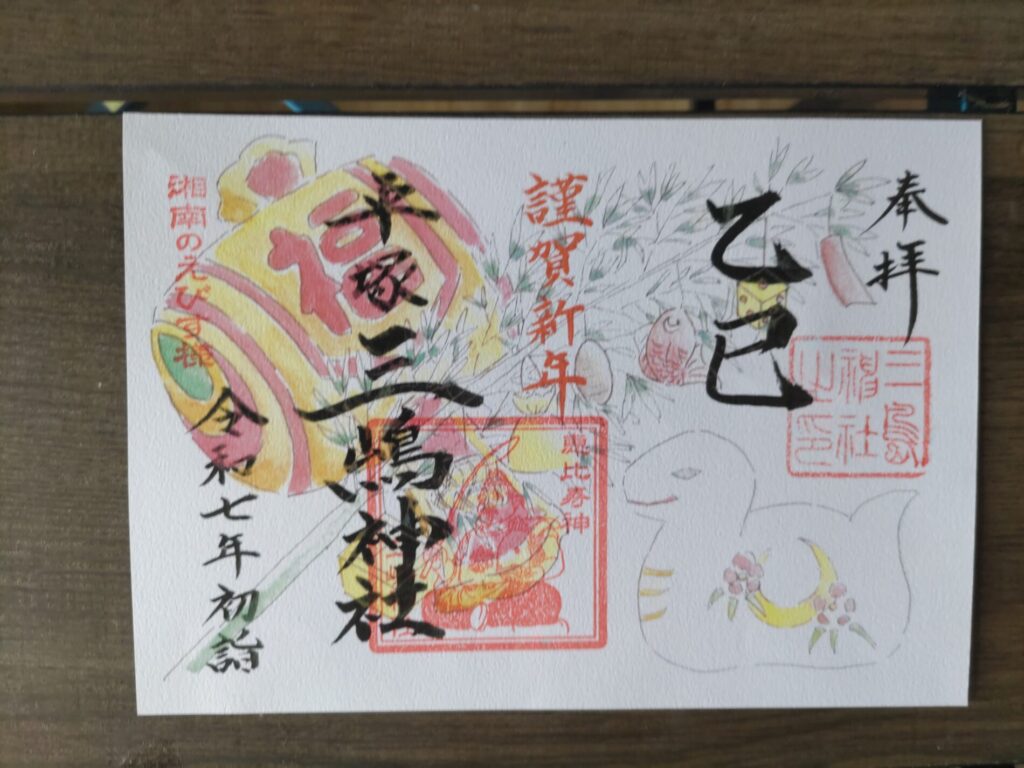 奉拝
三島
神社
之印
乙巳
謹賀新年
恵比寿神
平塚三嶋神社
福
湘南のえびす様
令和七年初詣